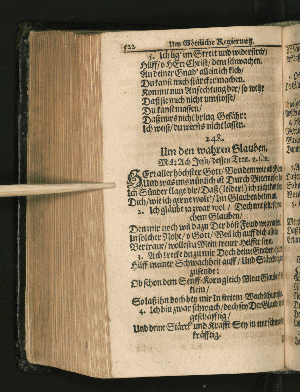 522 Um Göttliche Regierung.
5. Ich lig' im Streit und widerstreb/
Hilff/ o HErr Christ/ dem schwachen,
An deiner Gnad' allein ich kleb/
Du kanst mich stärcker machen.
Kommt nun Anfechtung her/ so wehr
Daß sie mich nicht umstosse/
Du kanst massen/
Daß mirs nicht bring Gefähr:
Ich weiß/ du wirsts nicht lassen.
248.
Um den wahren Glauben.
Mel: Ach Jesu/ dessen Treu.
HErr allerhöchster Gott/ Von dem wir
Und was uns nützlich ist Durch
Ich Sünder klage dir/ Daß leider! ich nicht
Dich/ wie ich gerne wolt'/ Im Glauben
2. Ich gläube ja zwar wol/ Doch mit
chem Glauben/
Den mir noch wil dazu Der böse Feind
In solcher Noht/ o Gott/ Weil ich auff dich
Vertraue/ wollestu Mein treuer Helffer seyn.
3. Ach! reck' du zu mir Doch deine
Hilff meiner Schwachheit auff/ Und
zusende:
Ob schon dem Senff-Korn gleich Mein
klein/
So laß ihn doch bey mir In stetem Wachsthum
4. Ich bin zwar schwach/ doch sey
geschäfftig/
Und deine Stärck' und Krafft Sey in mir
kräfftig.